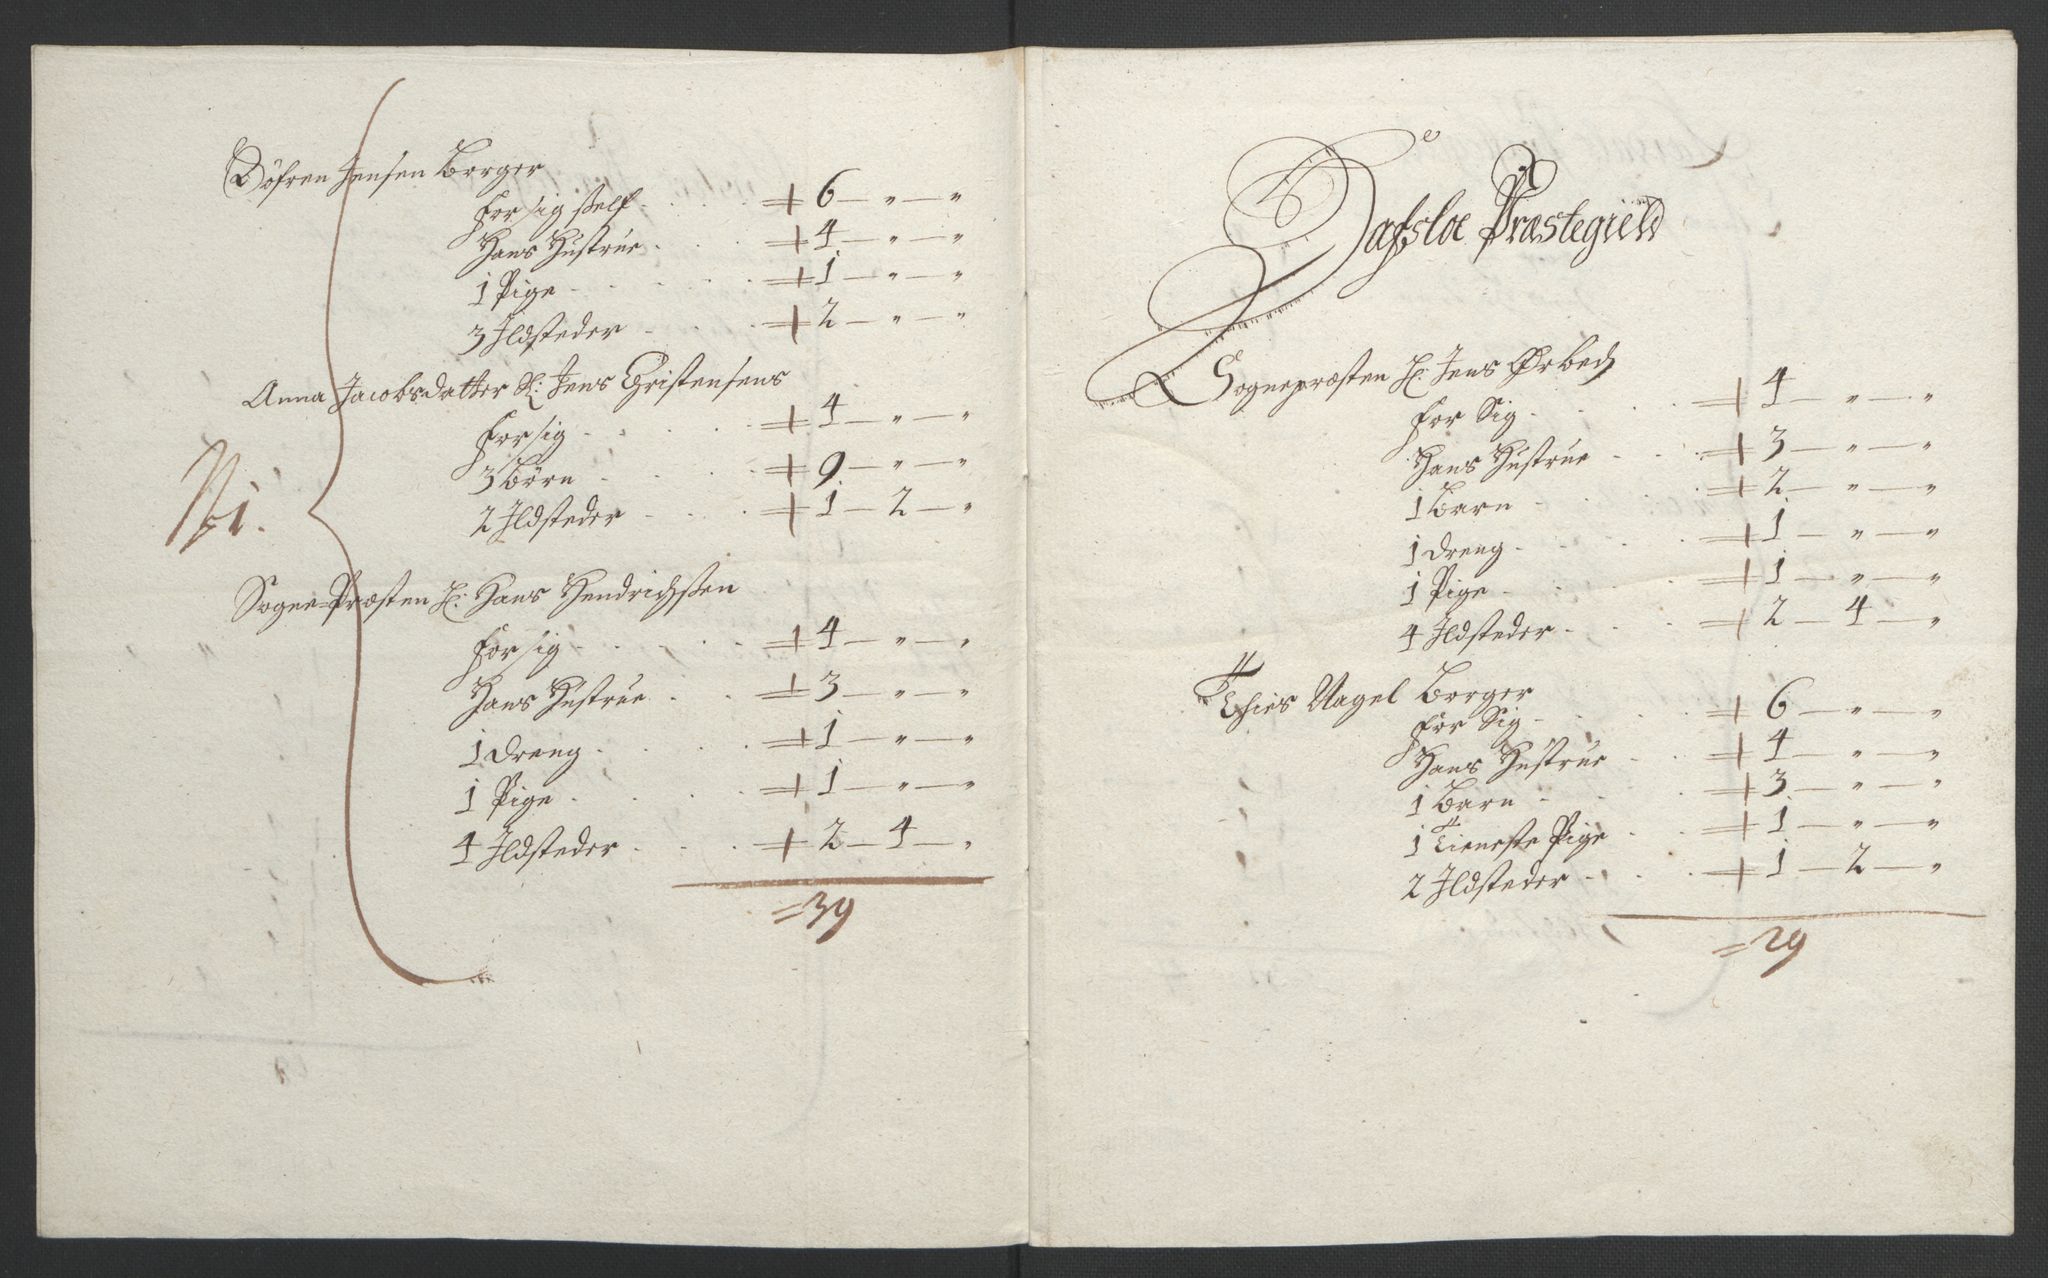 Søfren Jensen Borger
for sig Self . . . 6 — " — "
Hans Hustrue . . . 4 — " — "
1 Pige . . . 1 — " — "
3 Ildsteder . . . 2 — " — "
Anna Jacobsdatter Sl: Jens Christensens
for sig . . . 4 — " — "
3 Børn . . . 9 — " — "
2 Ildsteder . . . 1 — 2 — "
Sogne-Præsten H: Hans Hendrichssen
for sig . . . 4 — " — "
Hans Hustrue . . . 3 — " — "
1 Dreng . . . 1 — " — "
1 Pige . . . 1 — " — "
4 Ildsteder . . . 2 — 4 — "
= 39
Præstegield
Sognepræsten H: Jens Ørbech
for Sig . . . 4 — " — "
Hans Hustrue . . . 3 — " — "
1 Barn . . . 2 — " — "
1 Dreng . . . 1 — " — "
1 Pige . . . 1 — " — "
4 Ildsteder . . . 2 — 4 — "
Thies Nagel Borger
for Sig . . . 6 — " — "
Hans Hustrue . . . 4 — " — "
1 Barn . . . 3 — " — "
1 Tieneste Pige . . . 1 — " — "
2 Ildsteder . . . 1 — 2 — "
= 29